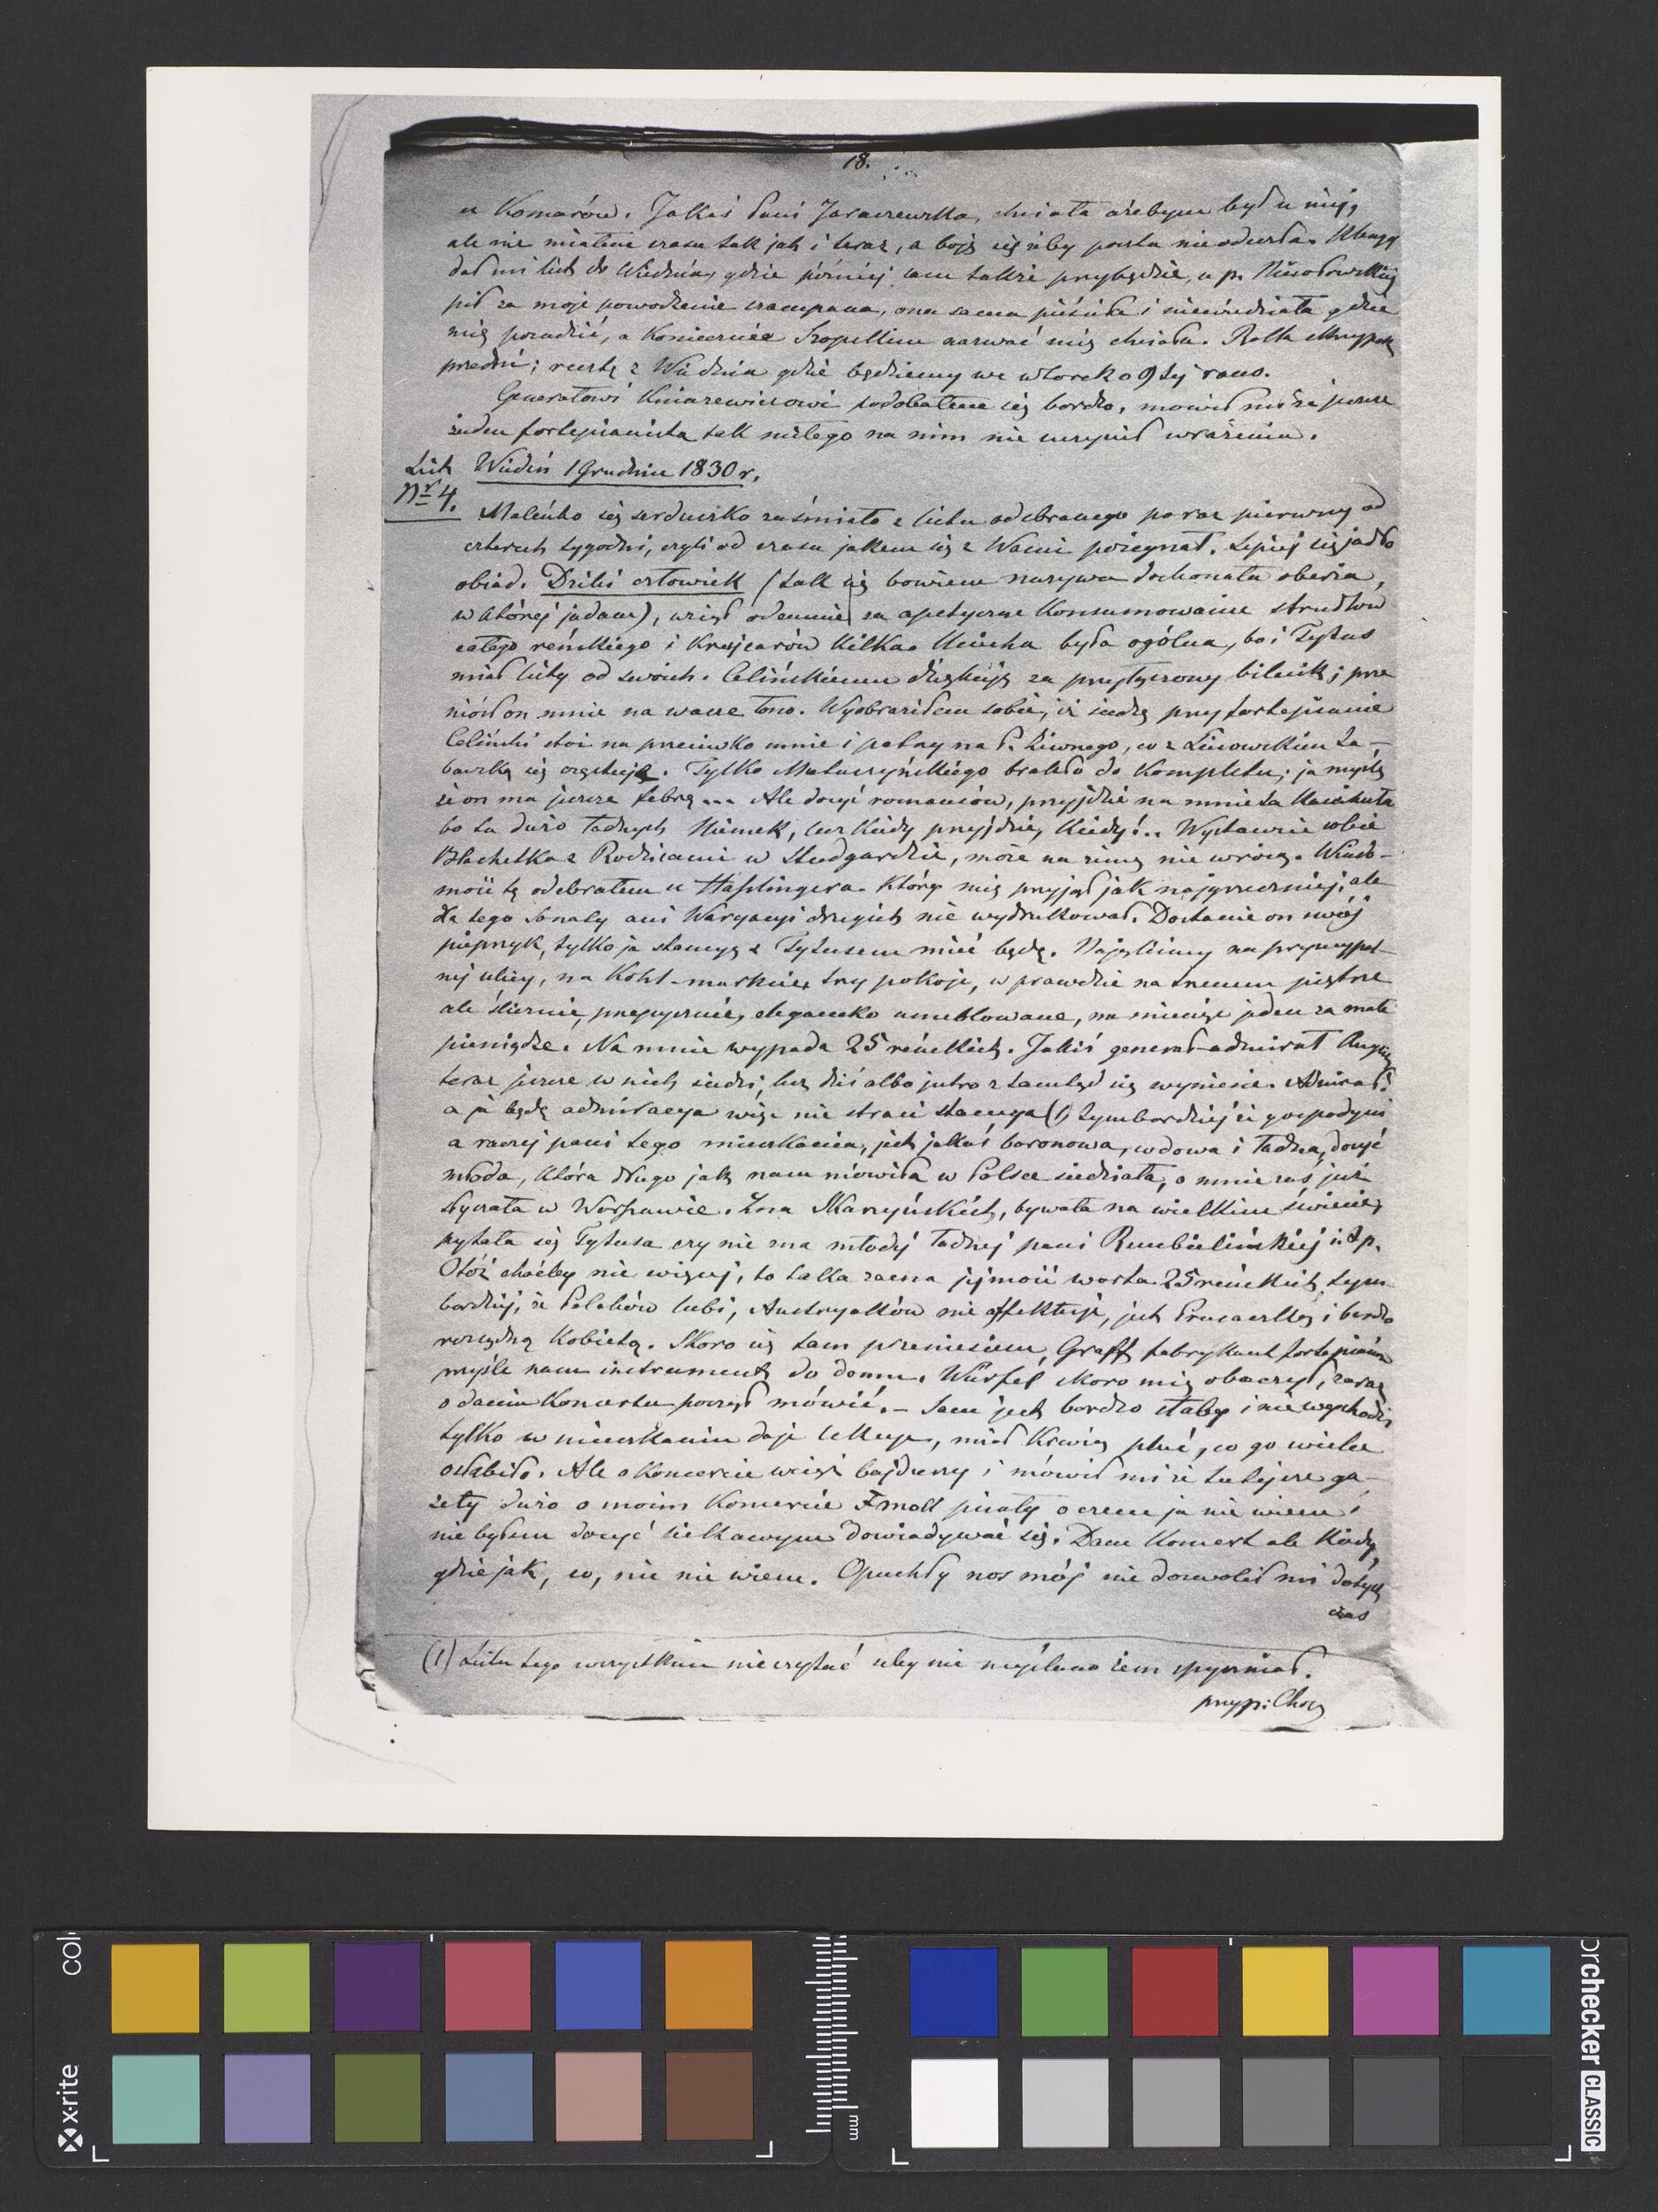 18.
u Komarów. Jakaś Pani Jaraczewska, chciała ażebym był u niéj,
ale nie miałem czasu tak jak i teraz, a boję się żeby poczta nie odeszła. Klengel
dał mi list do Wiednia, gdzie później sam także przybędzie, u p. Niesiołowskiéj
pił za moje powodzenie szampana, ona sama pieściła i niewiedziała gdzie
mię posadzić, a koniecznie Szopskim nazwać mię chciała. Rolla skrzypek
przedni; resztę z Wiednia gdzie będziemy we wtorek o 9téj rano.
Generałowi Kniaziewiczowi podobałem się bardzo, mówił mi że jeszcze
żaden fortepianista tak miłego na nim nie uczynił wrażenia.
List Wiedeń 1 Grudnia 1830 r.
Nr 4.
Maleńko się serduszko zaśmiało z listu odebranego po raz pierwszy od
czterech tygodni, czyli od czasu jakem się z Wami pożegnał. Lepiéj się jadło
obiad. Dziki człowiek (tak się bowiem nazywa doskonała oberża,
w któréj jadam), wziął odemnie za apetyczne konsumowanie strudlów
całego reńskiego i krajcarów kilka. Uciecha była ogólna, bo i Tytus
miał listy od swoich. Celińskiemu dziękuję za przyłączony bilecik; prze
niósł on mnie na wasze łono. Wyobraziłem sobie, iż siedzę przy fortepianie
Celiński stoi na przeciwko mnie i patrzy na P. Żiwnego, co z Linowskim ta-
baczką się częstuje. Tylko Matuszyńskiego brakło do kompletu; ja myślę
że on ma jeszcze febrę... Ale dosyć romansów, przyjdzie na mnie ta
bo tu dużo ładnych Niemek, lecz kiedy przyjdzie, kiedy!.. Wystawcie sobie
Blachetka z Rodzicami w Studgardzie, może na zimę nie wrócą. Wiado-
mość tę odebrałem u Haslingera. który mię przyjął jak najgrzeczniéj, ale
dla tego Sonaty ani Waryacyi drugich nie wydrukował. Dostanie on swój
pieprzyk, tylko ja stancyą z Tytusem mieć będę. Najęliśmy na pryncypal-
néj ulicy, na Kohl-markcie, trzy pokoje, w prawdzie na trzeciem piętrze
ale ślicznie, prześlicznie, elegancko umeblowane, na miesiąc jeden za małe
pieniądze. Na mnie wypada 25 reńskich. Jakiś generał-admirał Angiel
teraz jeszcze w nich siedzi, lecz dziś albo jutro z tamtąd się wyniesie. Admirał!
a ja będę admiracya więc nie straci stancya (1) tymbardziéj że gospodyni
a raczéj pani tego mieszkania, jest jakaś baronowa, wdowa i ładna, dosyć
młoda, która długo jak nam mówiła w Polsce siedziała, o mnie zaś już
słyszała w Warszawie. Zna Skarzyńskich, bywała na wielkim świecie,
pytała się Tytusa czy nie zna młodéj ładnéj pani Rembielińskiéj i t. p.
Otóż choćby nie więcéj, to taka zacna jejmość warta 25 reńskich, tym
bardziéj, że Polaków lubi, Austryaków nie affektuje, jest Prusaczką i bardzo
rozsądną kobietą. Skoro się tam przeniesiem, Graff fabrykant fortepianów
przyśle nam instrument do domu. Würfel skoro mię obaczył, zaraz
o daniu koncertu począł mówić. – Sam jest bardzo słaby i nie wychodzi,
tylko w mieszkaniu daje lekcye, miał krwią pluć, co go wiele
osłabiło. Ale o koncercie wciąż bajdurzy i mówił mi że tutejsze ga-
zety dużo o moim koncercie Fmoll pisały o czem ja nie wiem i
nie byłem dosyć ciekawym dowiadywać się. Dam koncert ale kiedy,
gdzie jak, co, nic nie wiem. Opuchły nos mój nie dozwolił mi dotych
czas
(1) Listu tego wszystkim nie czytać żeby nie myślano żem spyszniał.
przyp: Cho
x-rite
colorchecker CLASSIC
mm